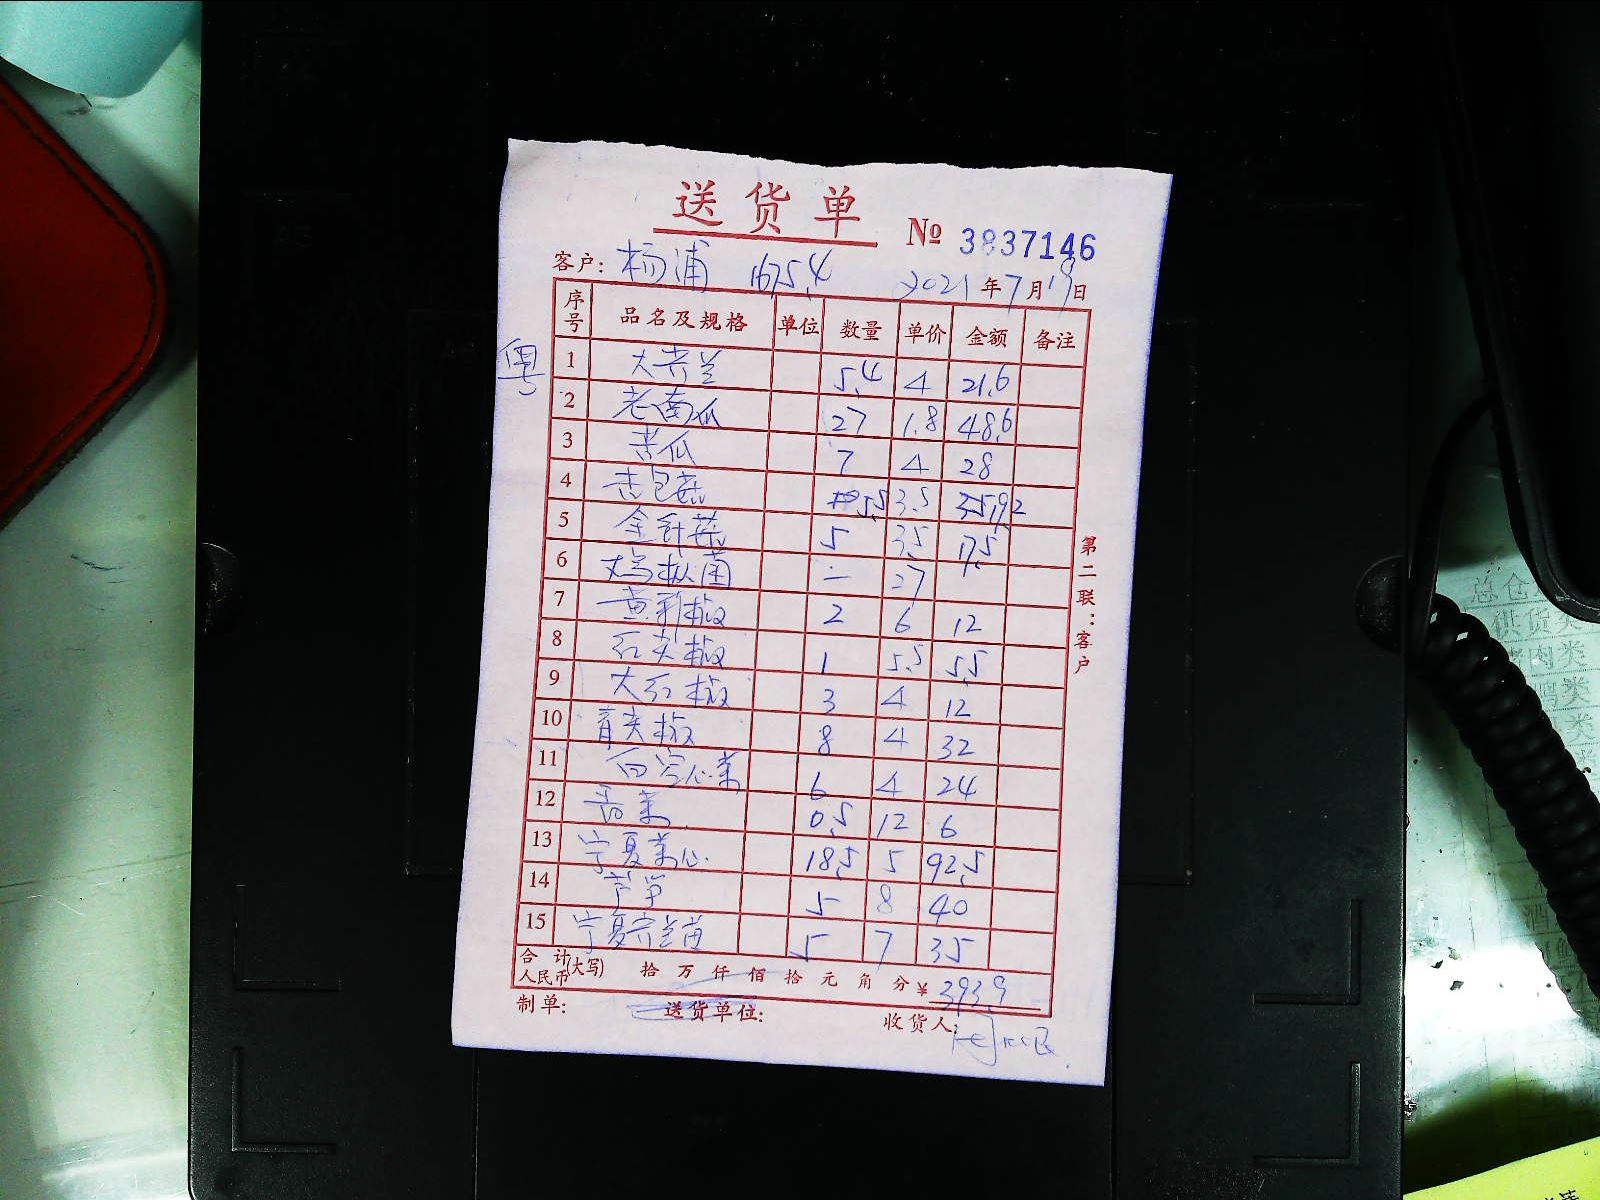 送货单 № 3837146
客户: 杨浦 1675.4 2021年7月19日
序号 品名及规格 单位 数量 单价 金额 备注
粤
1 大芥兰 5.4 4 21.6
2 老南瓜 27 1.8 48.6
3 苦瓜 7 4 28
4 杏包菇 5.5 3.5
5 金针菇 5 3.5 17.5
6 枞菌 — 27
7 黄彩椒 2 6 12
8 红尖椒 1 5.5 5.5
9 大红椒 3 4 12
10 青尖椒 8 4 32
11 白空心菜 6 4 24
12 香菜 0.5 12 6
13 宁夏菜心 18.5 5 92.5
14 芦笋 5 8 40
15 宁夏芥兰苗 5 7 35
合计人民币(大写) 拾 万 仟 佰 拾 元 角 分 ¥ 393.9
制单: 送货单位: 收货人:
第二联:客户
总仓
供货类
肉类
类